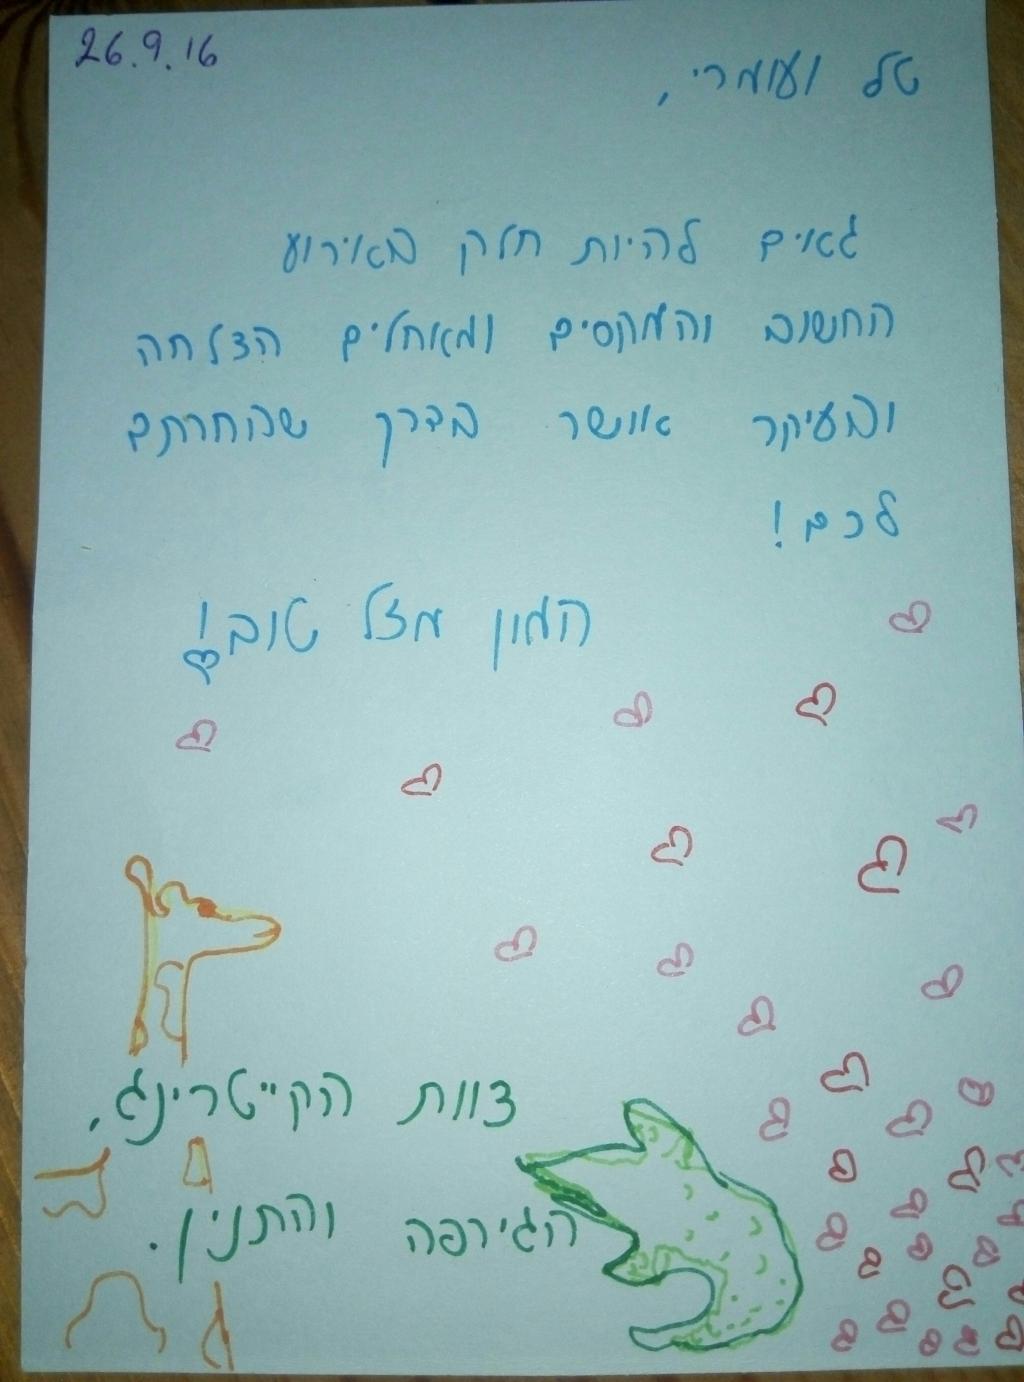 26.9.16
טל ועומרי,
גאים להיות חלק באירוע
החשוב והמקסים ומאחלים הצלחה
ובעיקר אושר בדרך שבחרתם
לכם!
המון מזל טוב!
צוות הקייטרינג,
הגירפה והתנין.